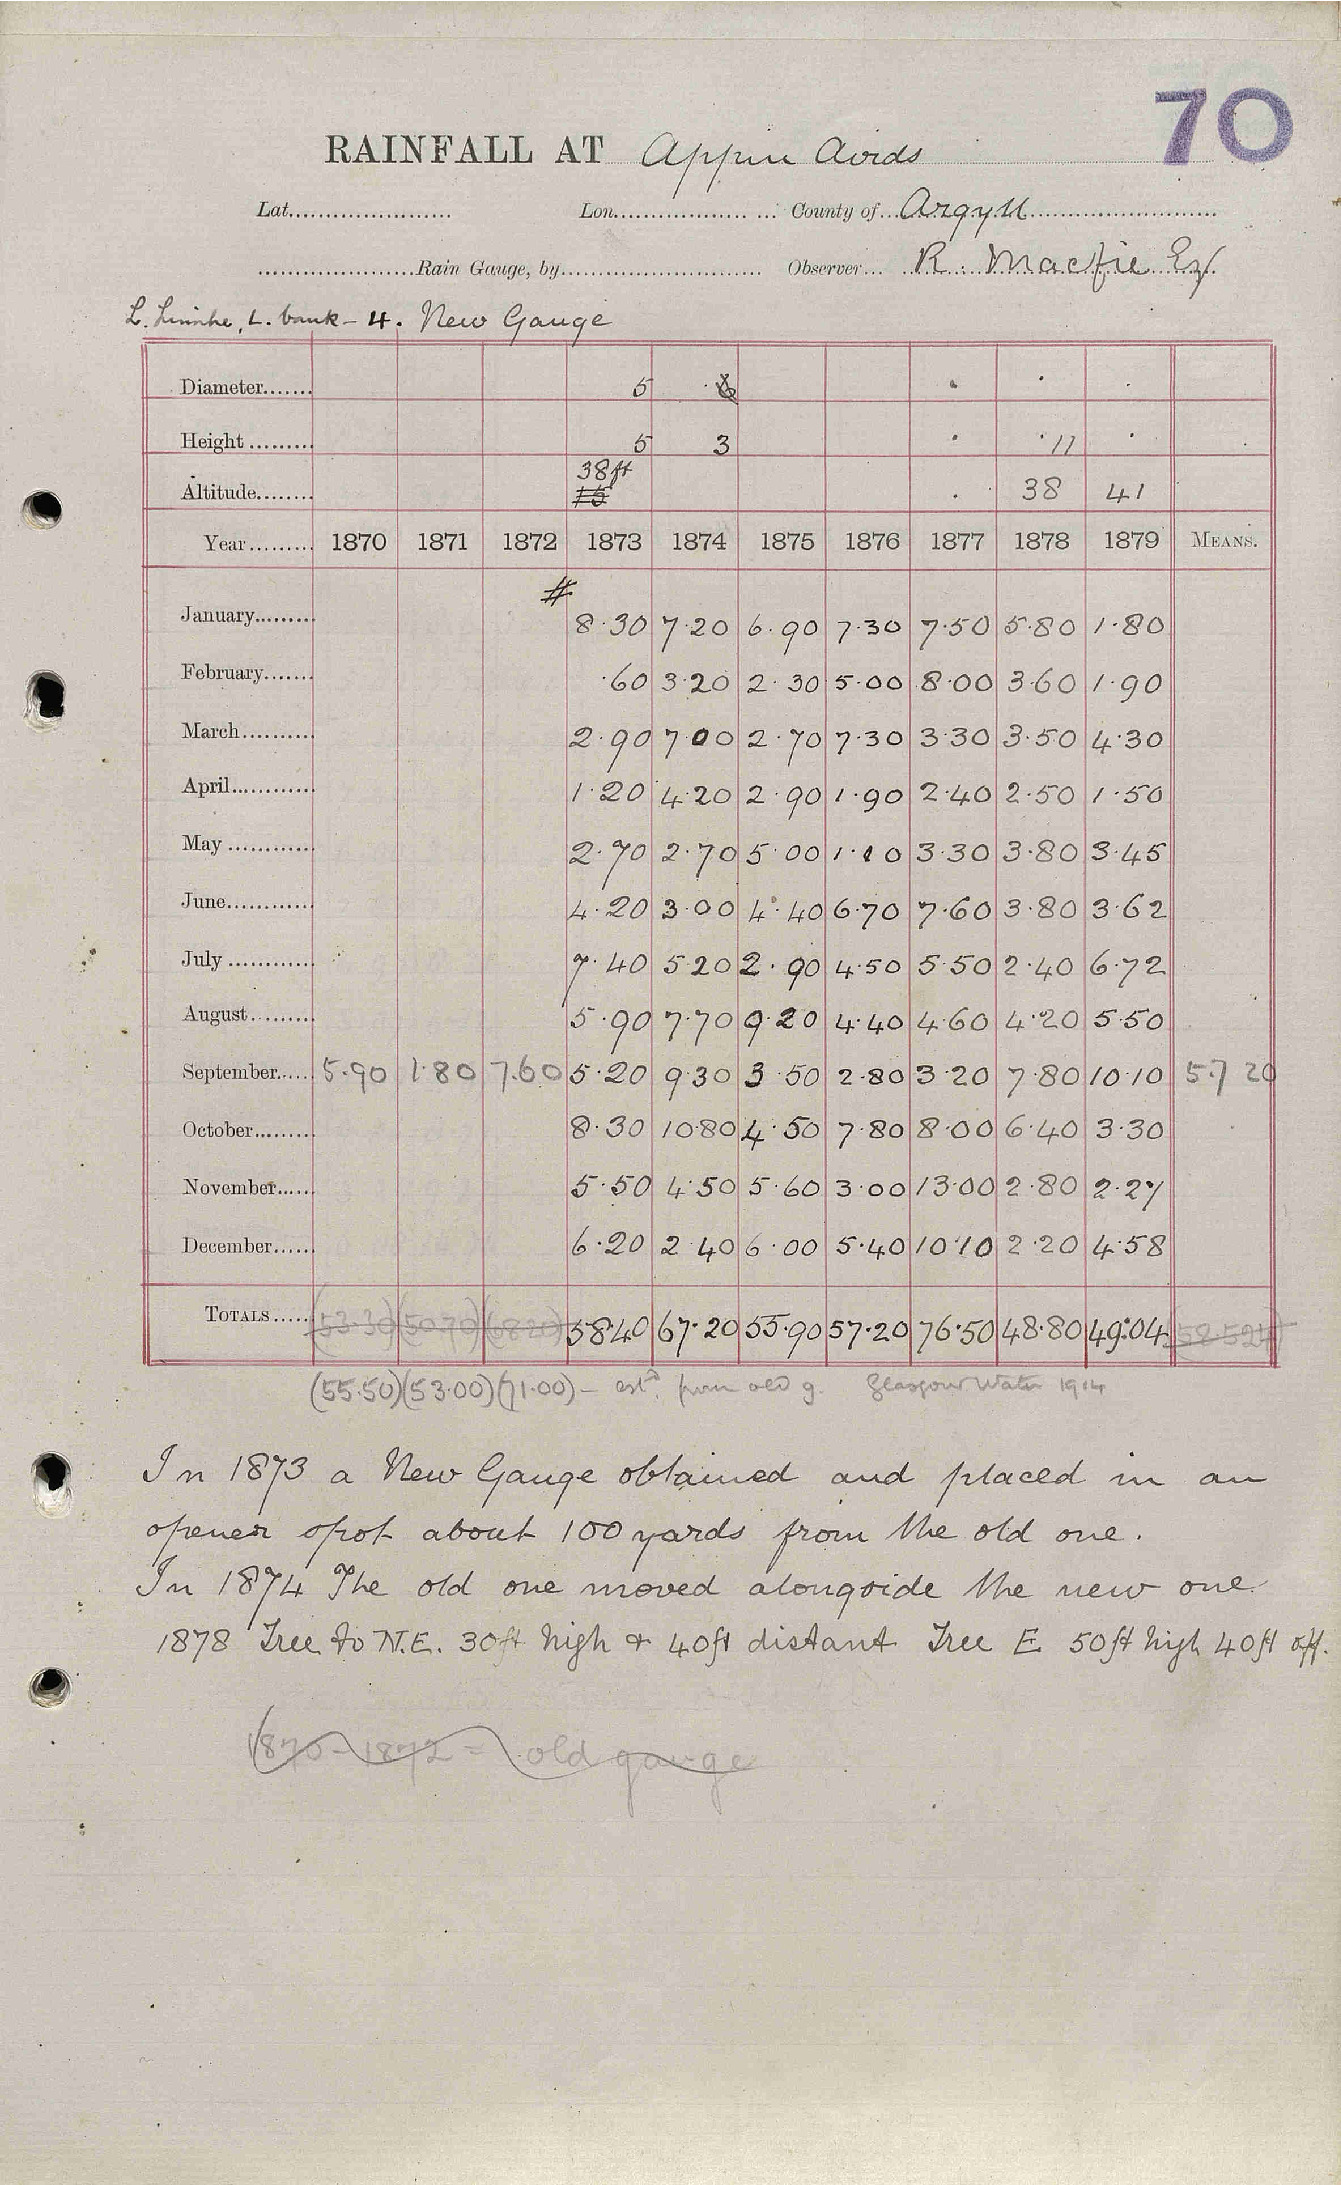 70
RAINFALL AT Appin Airds
Lat. Lon. County of Argyll
Rain Gauge, by Observer R. Macfie Esq
L. Linnhe, L. bank - 4. New Gauge
Diameter 5
Height 5 3 11
38ft
Altitude 38 41
Year 1870 1871 1872 1873 1874 1875 1876 1877 1878 1879 MEANS.
#
January 8.30 7.20 6.90 7.30 7.50 5.80 1.80
February .60 3.20 2.30 5.00 8.00 3.60 1.90
March 2.90 7.00 2.70 7.30 3.30 3.50 4.30
April 1.20 4.20 2.90 1.90 2.40 2.50 1.50
May 2.70 2.70 5.00 1.10 3.30 3.80 3.45
June 4.20 3.00 4.40 6.70 7.60 3.80 3.62
July 7.40 5.20 2.90 4.50 5.50 2.40 6.72
August 5.90 7.70 9.20 4.40 4.60 4.20 5.50
September 5.90 1.80 7.60 5.20 9.30 3.50 2.80 3.20 7.80 10.10 5.7 20
October 8.30 10.80 4.50 7.80 8.00 6.40 3.30
November 5.50 4.50 5.60 3.00 13.00 2.80 2.27
December 6.20 2.40 6.00 5.40 10.10 2.20 4.58
TOTALS (53.30) (50.70) (68.20) 58.40 67.20 55.90 57.20 76.50 48.80 49.04 (58.524)
(55.50) (53.00) (71.00) - estd. from old g. Glasgow Water 1914
In 1873 a New Gauge obtained and placed in an
opener spot about 100 yards from the old one.
In 1874 The old one moved alongside the new one
1878 Tree to N.E. 30ft high & 40ft distant Tree E 50ft high 40ft off.
1870 - 1872 = old gauge